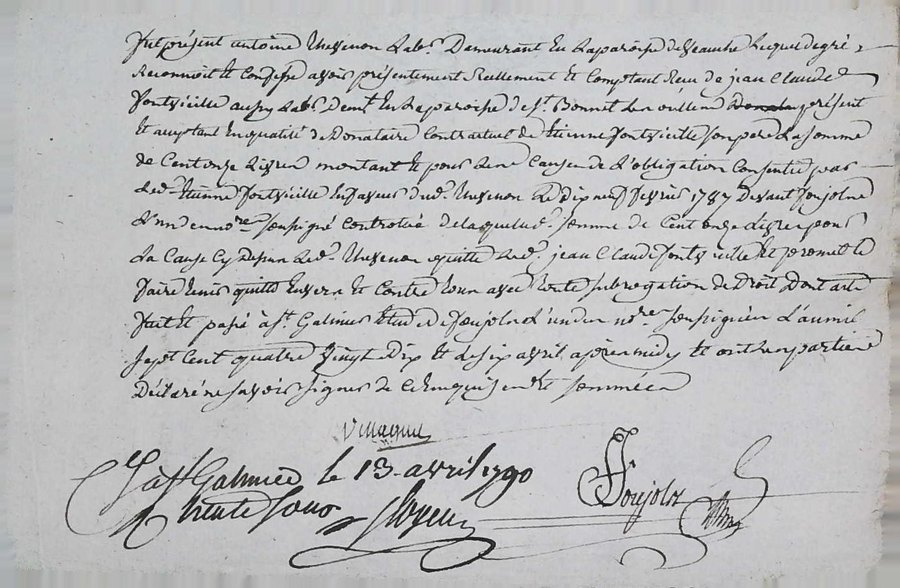 fut présent antoine Labr. Demeurant En La paroisse de Veauche Lequel de gré
Reconnoit Et Confesse avoir présentement Reellement Et Comptant Reçu de jean Claude
fontvieille aussy Labr. demt. En La paroisse de St. Bonnet Les oulles présent
Et acceptant En qualité de Donataire Contractuel de Etienne fontvieille son pere La somme
de Cent onze Livres montant Et pour Cause de L'obligation Consentie par
Led. Etienne fontvieille En faveur dud. Le Dix neuf fevrier 1787 Devant Soujolas
L'un des nore. soussigné Controlée De laquelle d. somme de Cent onze Livres pour
La Cause Cy Dessus Led. quitte Led. jean Claude fontvieille Et promet Le
faire tenir quitte Envers Et Contre tous avec Subrogation de Droit Dont acte
fait Et passé à St. Galmier Etude de Soujolas L'un des nore. soussignés L'an mil
sept Cent quatre Vingt Dix Et Le six avril après midy Et ont Les parties
Déclaré ne savoir signer de Ce Enquises Et sommées
à St Galmier le 13 avril 1790
trente sous
Soujolas